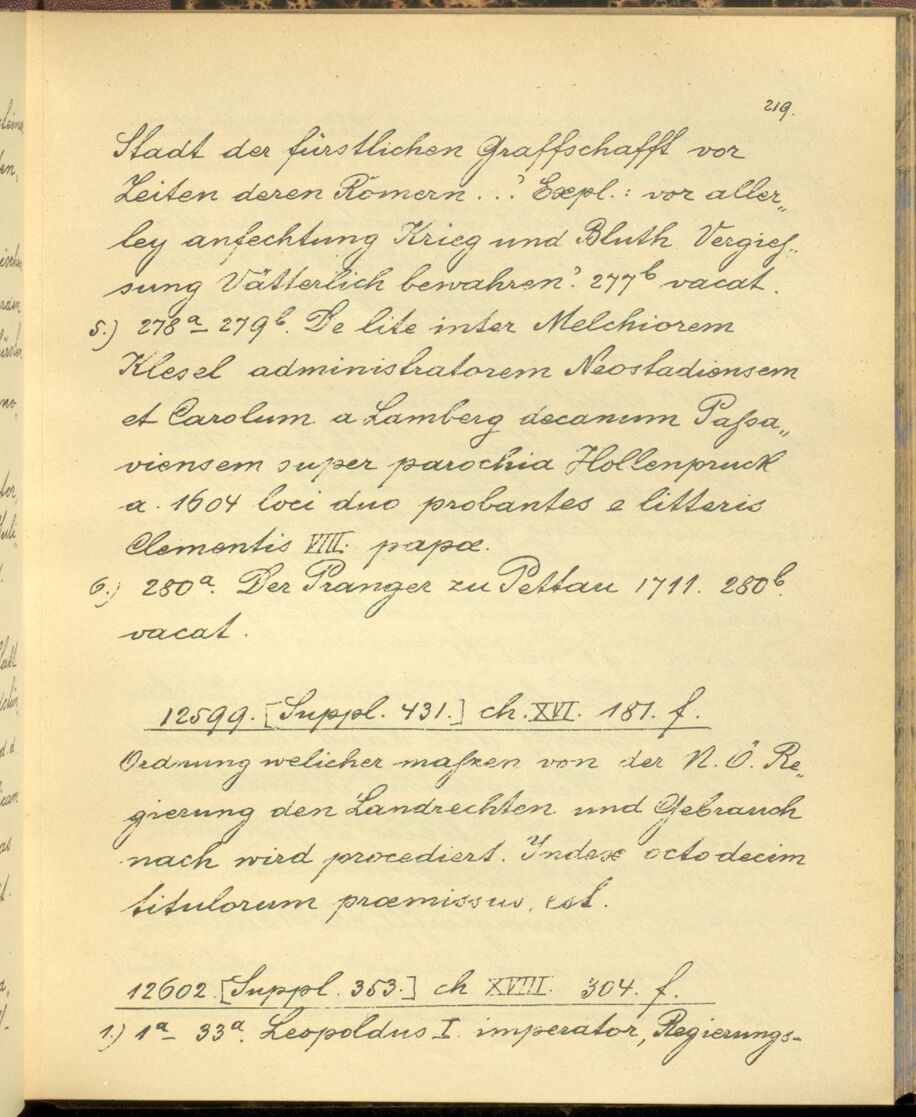 219.
Stadt der fürstlichen Graffschafft vor
Zeiten deren Römern...' Expl.: vor aller„
ley anfechtung Krieg und Bluth Vergieſ„
sung Vätterlich bewahren'. 277b vacat.
5.) 278a–279b. De lite inter Melchiorem
Klesel administratorem Neostadiensem
et Carolum a Lamberg decanum Paſsa„
viensem super parochia Hollenpruck
a. 1604 loci duo probantes e litteris
Clementis VIII. papæ.
6.) 280a. Der Pranger zu Pettau 1711. 280b.
vacat.
12599. [Suppl. 431.] ch. XVI. 181. f.
Ordnung welicher maſzen von der N. Ö. Re„
gierung den Landrechten und Gebrauch
nach wird procediert. Index octodecim
titulorum præmissus est.
12602. [Suppl. 353.] ch XVIII. 304. f.
1.) 1a– 33a. Leopoldus I. imperator, Regierungs-